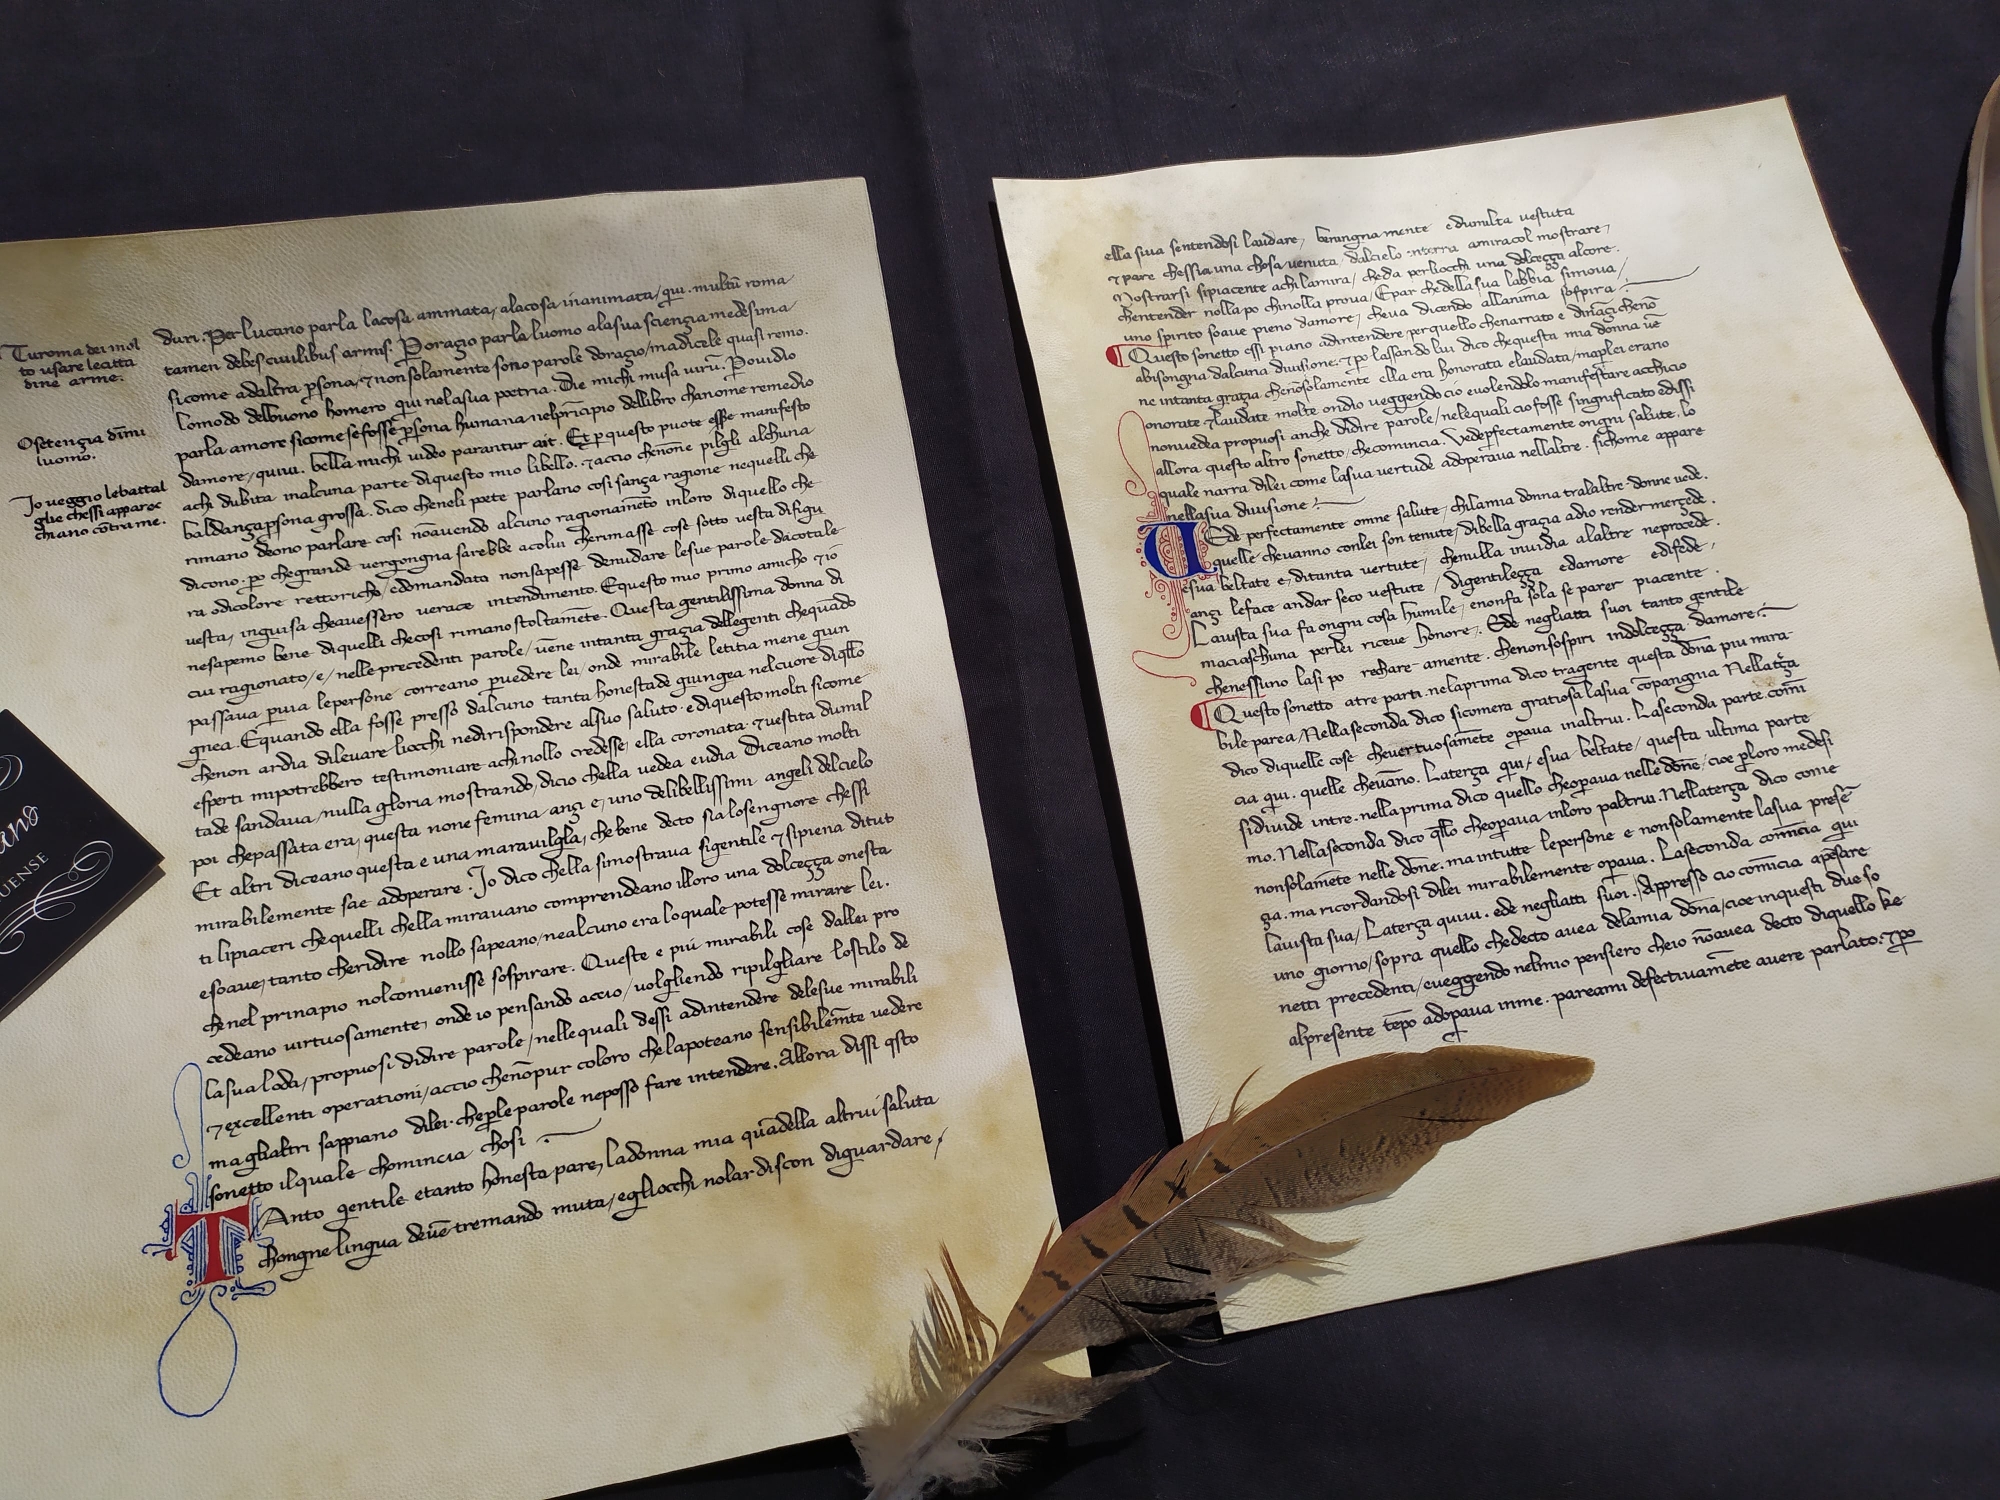 Turoma dei mol
to usare lecitta
dine arme.
Osciençia dimi
luomo.
Jo veggio lebattal
glie chessi apparec
chiano cōtra me.
duri. Per lucano parla lacosa ammata, alacosa inanimata, qui. multū roma
tamen debes civilibus armis. Poragio parla luomo alasua sciençia medesima
sicome adaltra ꝑsona, ⁊ nonsolamente sono parole doragio, madicele quasi remo.
lomodo delbuono homero qui nelasua poetria. Die michi musa virū. Povidio
parla amore sicome sefosse ꝑsona humana nelprīcipio dellibro chanome remedio
damore, quivi. bella michi video parantur ait. Et ꝑ questo puote esse manifesto
achi dubita inalcuna parte diquesto mio libello. ⁊ accio chenōne pilgli alchuna
baldança ꝑsona grossa. dico cheneli poete parlano cosi sança ragione nequelli che
rimano deono parlare cosi nōavendo alcuno ragionamēto inloro diquello che
dicono. ꝑo chegrande vergongna sarebbe acolui cherimasse cose sotto vesta difigu
ra odicolore rettoricho, edomandata nonsapesse denudare lesue parole dacotale
vesta, inguisa cheavessero verace intendimento. Equesto mio primo amicho ⁊ io
nesapemo bene diquelli checosi rimano stoltamēte. Questa gentilissima donna di
cui ragionato, e, nelle precedenti parole, vēne intanta graçia dellegenti chequādo
passava ꝑ via lepersone correano ꝑ vedere lei, onde mirabile letitia mene giun
gnea. Equando ella fosse presso dalcuno tanta honestade giungea nelcuore diqllo
chenon ardia dilevare liocchi nedirispondere alsuo saluto. ediquesto molti sicome
esperti mipotrebbero testimoniare achinollo credesse, ella coronata. ⁊ vestita dumil
tade sandava, nulla gloria mostrando, dicio chella vedea eudia Diceano molti
poi chepassata era, questa none femina, ançi e, uno delibellissimi angeli delcielo
Et altri diceano questa e una maravilgla, che bene decto sia losengnore chessi
mirabilemente sae adoperare. Jo dico chella simostrava sigentile ⁊ sipiena ditut
ti lipiaceri chequelli chella miravano comprendeano illoro una dolceçça onesta
esoave, tanto cheridire nollo sapeano, nealcuno era loquale potesse mirare lei.
chenel principio nolconvenisse sospirare. Queste e più mirabili cose dallei pro
cedeano virtuosamente, onde io pensando accio, volgliendo ripilgliare lostilo de
lasua loda, propuosi didire parole, nellequali dessi adintendere delesue mirabili
⁊ excellenti operationi, accio chenōpur coloro chelapoteano sensibilemēte vedere
ma gliatri sappiano dilei. cheꝑle parole neposso fare intendere. Allora dissi qsto
sonetto ilquale chomincia chosi
TAnto gentile etanto honesta pare, ladonna mia quādella altrui saluta
chongne lingua devē tremando muta, egliocchi nolardiscon diguardare,
ella sua sentendosi laudare, beningnamente edumilta vestuta
⁊ pare chessia una chosa venuta, dalcielo interra amiracol mostrare,
Mostrarsi sipiacente achilamira, cheda perliocchi una dolceçça alcore.
chentender nolla po chinolla prova, Epar chedella sua labbia simova,
uno spirito soave pieno damore, cheva dicendo allanima sospira
Questo sonetto essi piano adintendere, perquello chenarrato e dināçi chenō
abisongna dalcuna divisione. ⁊ ꝑo lassando lui dico chequesta mia donna vē
ne intanta graçia chenōsolamente ella era honorata elaudata, maplei erano
onorate ⁊ laudate molte ondio veggendo cio evolendolo manifestare acchicio
nonvedea propuosi anche didire parole, nelequali cio fosse singnificato edissi
allora questo altro sonetto, checomincia. Vedeperfectamente ongni salute. lo
quale narra dilei come lasua vertude adoperava nellaltre. sichome appare
nellasua divisione
VEde perfectamente omne salute, chilamia donna tralaltre donne vede.
quelle chevanno conlei son tenute, dibella graçia adio render merçede.
esua beltate e, ditanta vertute, chenulla invidia alaltre neprocede.
ançi leface andar seco vestute, digentileçça edamore edifede,
Lavista sua fa ongni cosa humile, enonfa sola se parer piacente.
maciaschuna perlei riceve honore. Ede negliatti suoi tanto gentile
chenessuno lasi po rechare amente. chenonsospiri indolceçça damore.
Questo sonetto atre parti. nelaprima dico tragente questa dōna piu mira
bile parea, Nellaseconda dico sicomera gratiosa lasua cōpangnia Nellatça
dico diquelle cose chevertuosamēte oꝑava inaltrui. Laseconda parte comī
cia qui. quelle chevāno. Laterça qui, esua beltate, questa ultima parte
sidivide intre. nella prima dico quello cheoꝑava nelle dōne, cioe ꝑ loro medesi
mo. Nellaseconda dico qllo cheoꝑava inloro ꝑaltrui. Nellaterça dico come
nonsolamēte nelle dōne. ma intutte lepersone e nonsolamente lasua presē
ça. ma ricordandosi dilei mirabilemente oꝑava. Laseconda comīcia qui
lavista sua, Laterça quivi. ede negliatti suoi. Appresso cio comīcia apēsare
uno giorno, sopra quello chedecto avea delamia dōna, cioe inquesti due so
netti precedenti, eveggendo nelmio pensiero cheio nōavea decto diquello ke
alpresente tēpo adoꝑava inme. pareami defectivamēte avere parlato. ⁊ ꝑo
UENSE